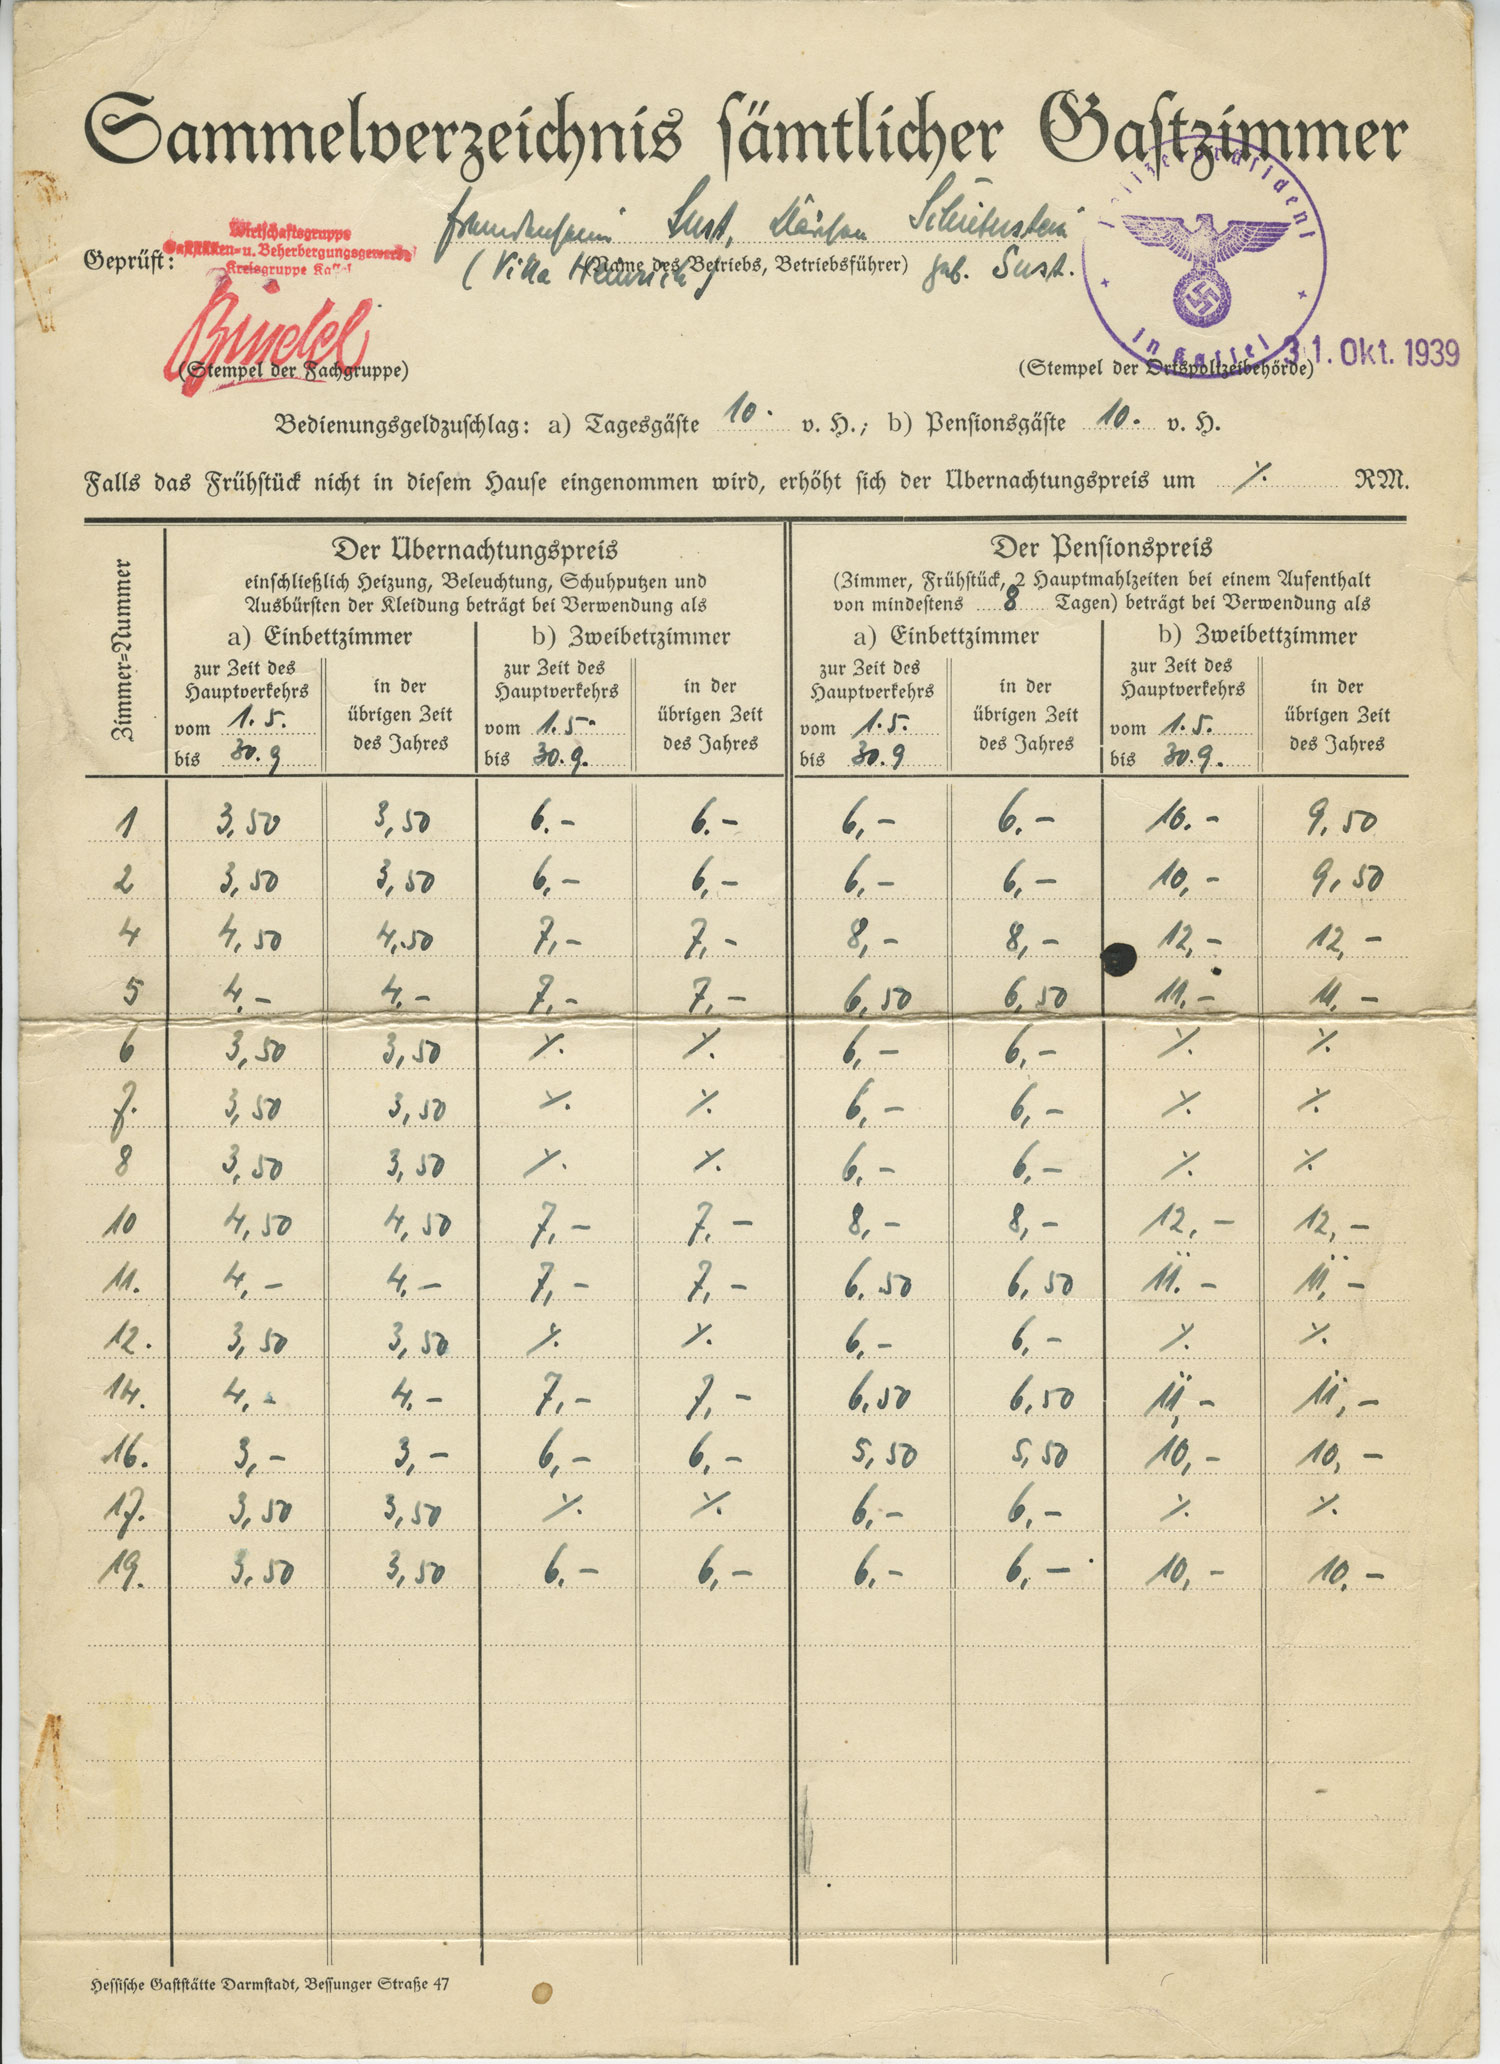 Sammelverzeichnis sämtlicher Gastzimmer
Geprüft:
Wirtschaftsgruppe
Gaststätten- u. Beherbergungsgewerbe
Kreisgruppe Kassel
Sust,
(Villa Heinrich)
geb. Sust.
(Name des Betriebs, Betriebsführer)
Polizeipräsident
in Kassel
31. Okt. 1939
(Stempel der Fachgruppe)
(Stempel der Ortspolizeibehörde)
Bedienungsgeldzuschlag: a) Tagesgäste 10. v. H.; b) Pensionsgäste 10. v. H.
Falls das Frühstück nicht in diesem Hause eingenommen wird, erhöht sich der Übernachtungspreis um ·/. RM.
Zimmer-Nummer
Der Übernachtungspreis
einschließlich Heizung, Beleuchtung, Schuhputzen und
Ausbürsten der Kleidung beträgt bei Verwendung als
a) Einbettzimmer
b) Zweibettzimmer
zur Zeit des
Hauptverkehrs
vom 1.5.
bis 30.9
in der
übrigen Zeit
des Jahres
zur Zeit des
Hauptverkehrs
vom 1.5.
bis 30.9.
in der
übrigen Zeit
des Jahres
Der Pensionspreis
(Zimmer, Frühstück, 2 Hauptmahlzeiten bei einem Aufenthalt
von mindestens 8 Tagen) beträgt bei Verwendung als
a) Einbettzimmer
b) Zweibettzimmer
zur Zeit des
Hauptverkehrs
vom 1.5.
bis 30.9
in der
übrigen Zeit
des Jahres
zur Zeit des
Hauptverkehrs
vom 1.5.
bis 30.9.
in der
übrigen Zeit
des Jahres
1 3,50 3,50 6.– 6.– 6,– 6.– 10.– 9,50
2 3,50 3,50 6,– 6,– 6,– 6,– 10,– 9,50
4 4,50 4,50 7,– 7,– 8,– 8,– 12,– 12,–
5 4,– 4,– 7,– 7,– 6,50 6,50 11.– 11.–
6 3,50 3,50 ·/. ·/. 6,– 6,– ·/. ·/.
7. 3,50 3,50 ·/. ·/. 6,– 6,– ·/. ·/.
8 3,50 3,50 ·/. ·/. 6,– 6,– ·/. ·/.
10 4,50 4,50 7,– 7,– 8,– 8,– 12,– 12,–
11. 4,– 4,– 7,– 7,– 6,50 6,50 11.– 11,–
12. 3,50 3,50 ·/. ·/. 6,– 6,– ·/. ·/.
14. 4,– 4,– 7,– 7,– 6,50 6,50 11,– 11,–
16. 3,– 3,– 6,– 6,– 5,50 5,50 10,– 10,–
17. 3,50 3,50 ·/. ·/. 6,– 6,– ·/. ·/.
19. 3,50 3,50 6,– 6,– 6,– 6,– 10,– 10,–
Hessische Gaststätte Darmstadt, Bessunger Straße 47